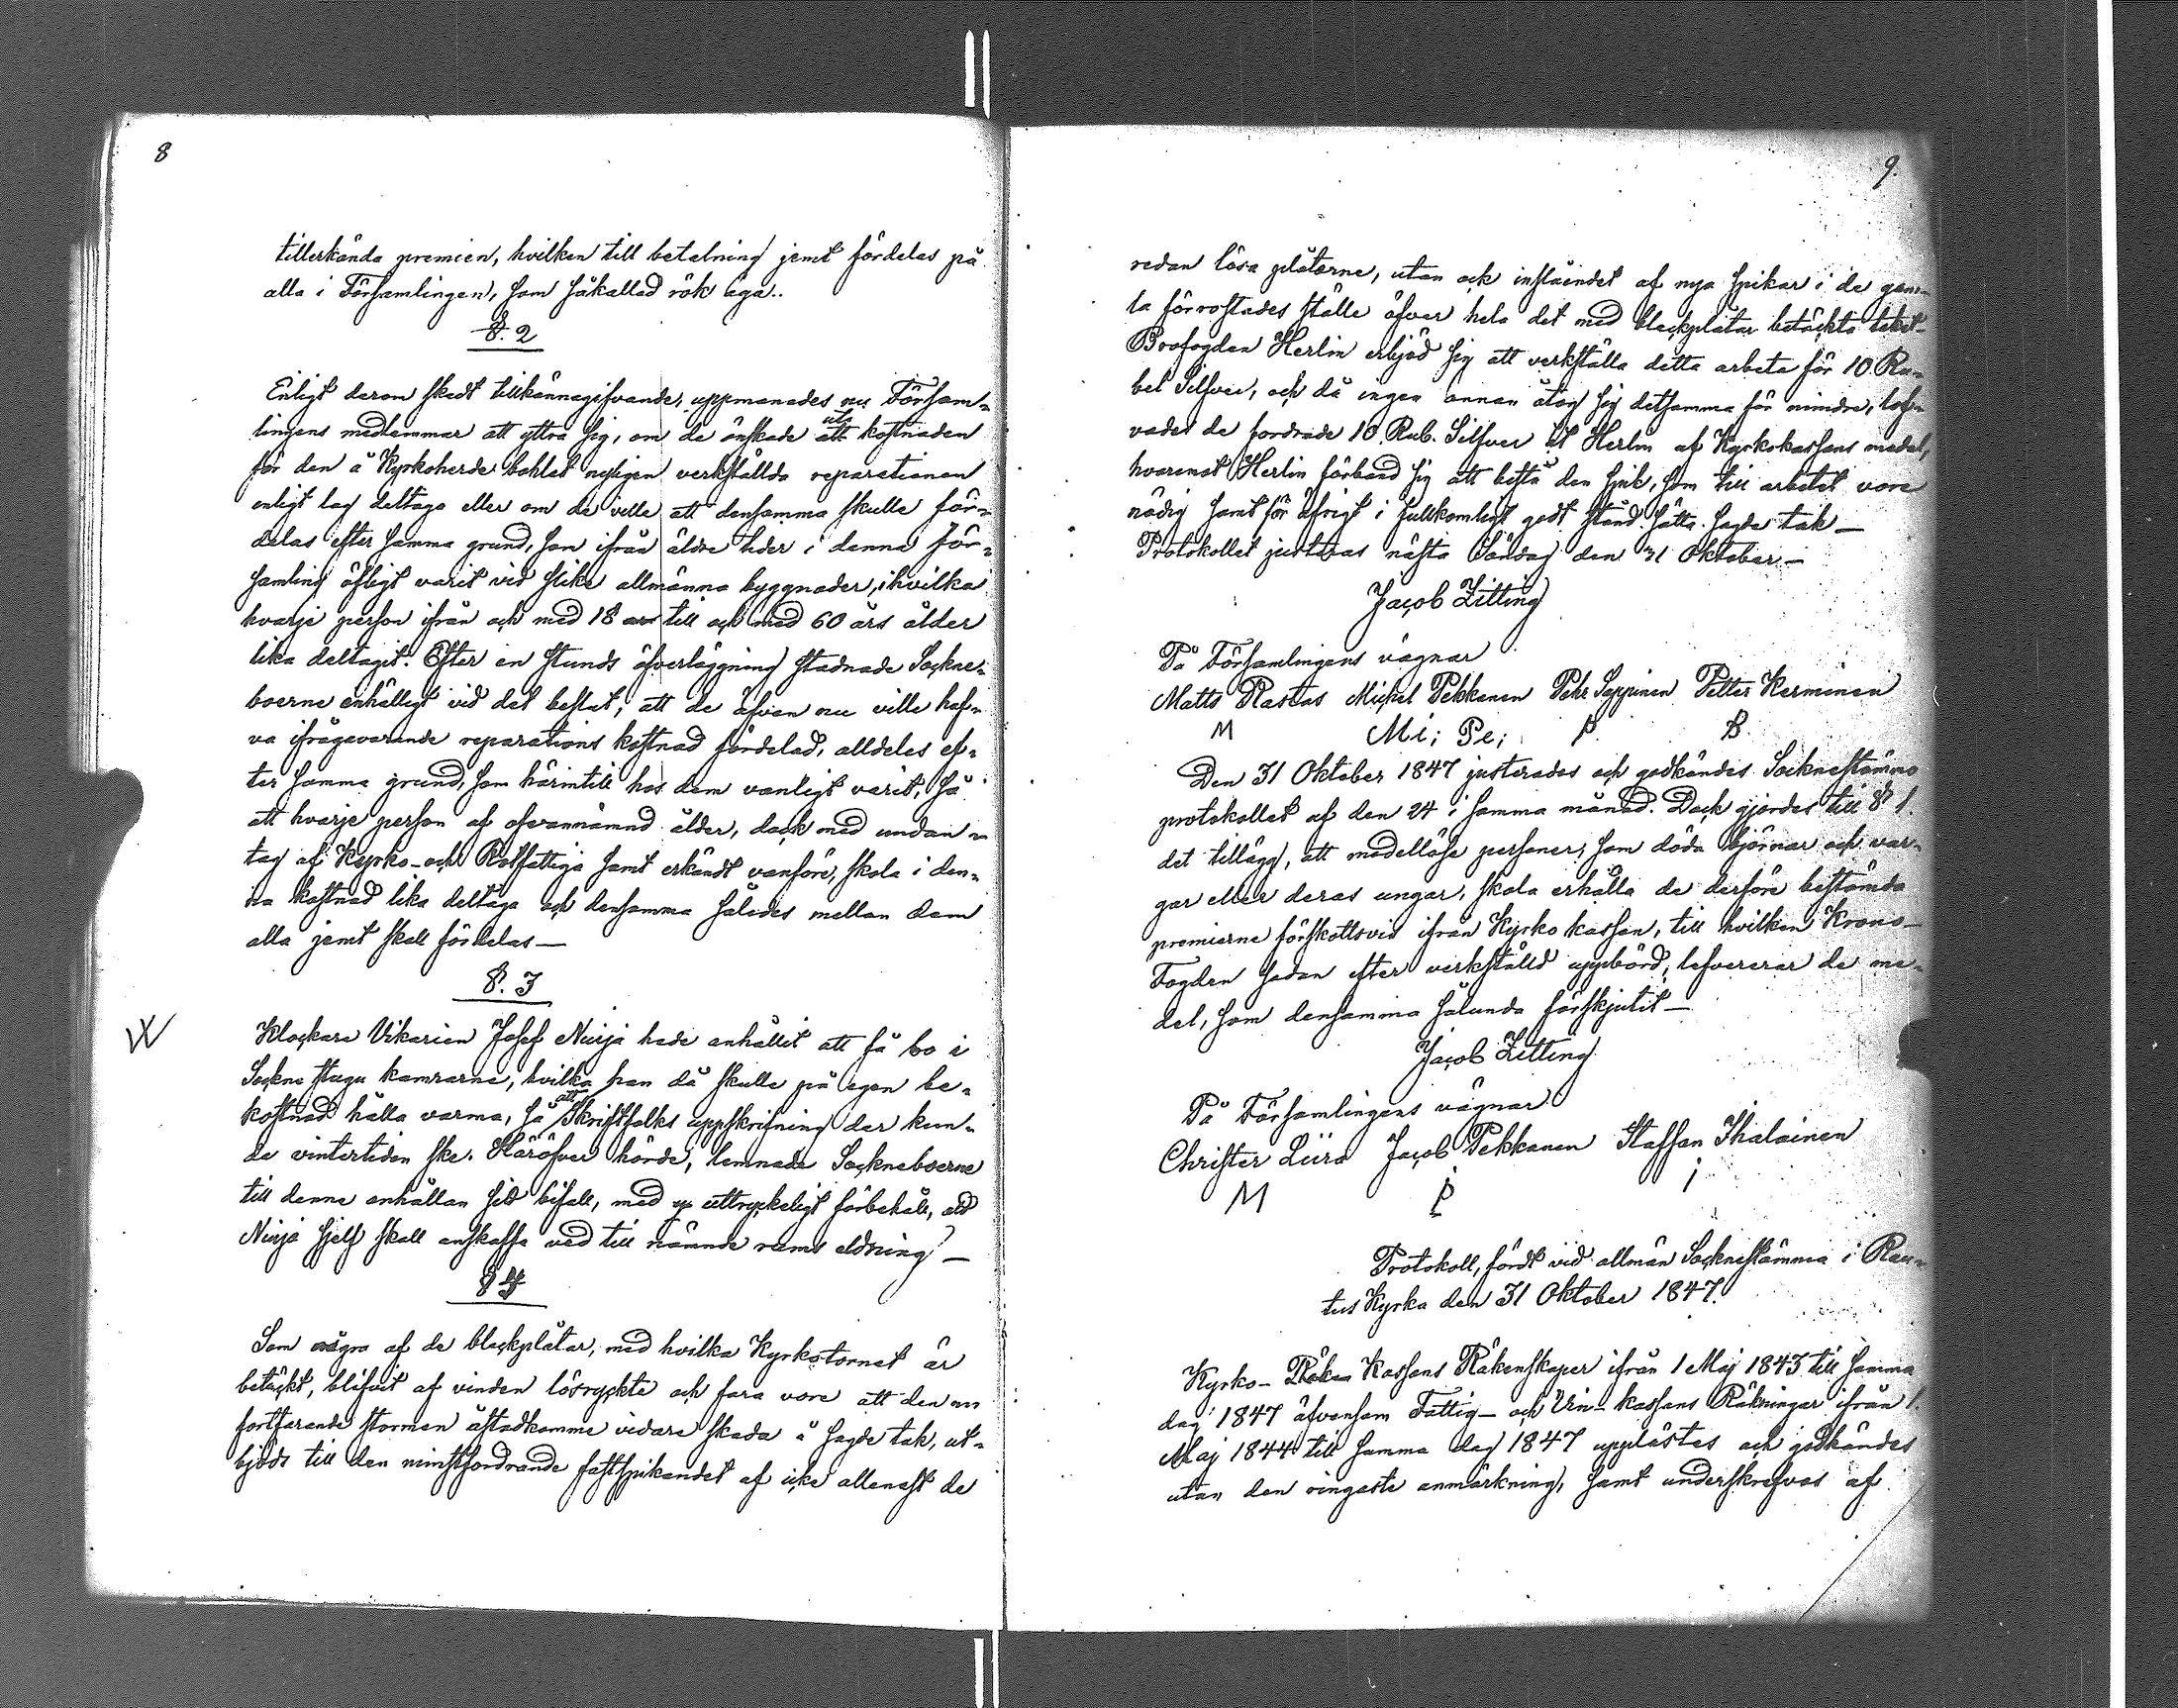 8
tillerkända premien, hvilken till betalning jemt fördelas på
alla i Församlingen, som såkallad rök äga..
§. 2
Enligt derom skedt tillkännagifvande, uppmanades nu Försam-
lingens medlemmar att yttra sig, om de önskade att uti kostnaden
för den å Kyrkoherde bohlet nyligen verkställda reparationen
enligt lag deltaga eller om de ville att densamma skulle för-
delas efter samma grund, som ifrån äldre tider i denna För-
samling öfligt varit vid slika allmänna byggnader, i hvilka
hvarje person ifrån och med 18 års till och med 60 års ålder
lika deltagit. Efter en stunds öfverläggning stadnade Sockne-
boerne enhälligt vid det beslut, att de äfven nu ville haf-
va ifrågavarande reparations kostnad fördelad, alldeles ef-
ter samma grund, som härintill hos dem vanligt varit, så
att hvarje person af ofvannämnd ålder, dock med undan-
tag af Kyrko- och Rotfattiga samt erkändt vanföre, skola i den-
na kostnad lika deltaga och densamma således mellan dem
alla jemt skall fördelas —
§. 3
Klockare Vikarien Josef Nuija hade anhållit att få bo i
Sockne stugu kamrarne, hvilka han då skulle på egen be-
kostnad hålla varma, så att Skriftfolks uppskrifning der kun-
de vintertiden ske. Häröfver hörde, lemnade Sockneboerne
till denna anhållan sitt bifall, med uttryckeligt förbehåll, att
Nuija sjelf skall anskaffa ved till nämnde rums eldning —
§ 4
Som några af de bleckplåtar, med hvilka Kyrkotornet är
betäckt, blifvit af vinden lösryckte och fara vore att den nu
fortfarande stormen åstadkomme vidare skada å sagde tak, ut-
bjöds till den minstfordrande fastspikandet af icke allenast de
9.
redan lösa plåtarne, utan ock inslåendet af nya spikar i de gam-
la förrostades ställe öfver hela det med bleckplåtar betäckta taket.
Brofogden Herlin erbjöd sig att verkställa detta arbete för 10 Ru-
bel Silfver, och då ingen annan åtog sig detsamma för mindre, lof-
vades de fordrade 10. Rub. Silfver åt Herlin af Kyrkokassans medel,
hvaremot Herlin förband sig att bestå den spik, som till arbetet vore
nödig samt för öfrigt i fullkomligt godt stånd sätta sagde tak —
Protokollet justeras nästa Söndag den 31 Oktober. —
Jacob Zitting
På Församlingens vägnar
Matts Rastas Michel Pekkanen Pehr Seppinen Petter Kerminen
M Mi; Pe; P B
Den 31 Oktober 1847 justerades och godkändes Sockneståmmo
protokollet af den 24 i samma månad. Dock gjordes till § 1.
det tillägg, att medellösa personer, som döda björnar och var-
gar eller deras ungar, skola erhålla de derföre bestämda
premierne förskottsvis ifrån Kyrko kassan, till hvilken Krono-
Fogden sedan efter verkställd uppbörd, lefvererar de me-
del, som densamma sålunda förskjutit —
Jacob Zitting
På Församlingens vägnar
Christer Liira Jacob Pekkanen Staffan Ihalainen
M P I
Protokoll, fördt vid allmän Socknestämma i Rau-
tus Kyrka den 31 Oktober 1847.
Kyrko- Kassans Räkenskaper ifrån 1 Maj 1843 till samma
dag 1847 äfvensom Fattig- och Vin- kassans Räkningar ifrån 1.
Maj 1844 till samma dag 1847 upplästes och godkändes
utan den ringaste anmärkning, samt underskrefvos af